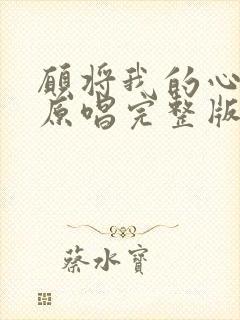 願将我的心
原唱完整版
蔡水寶